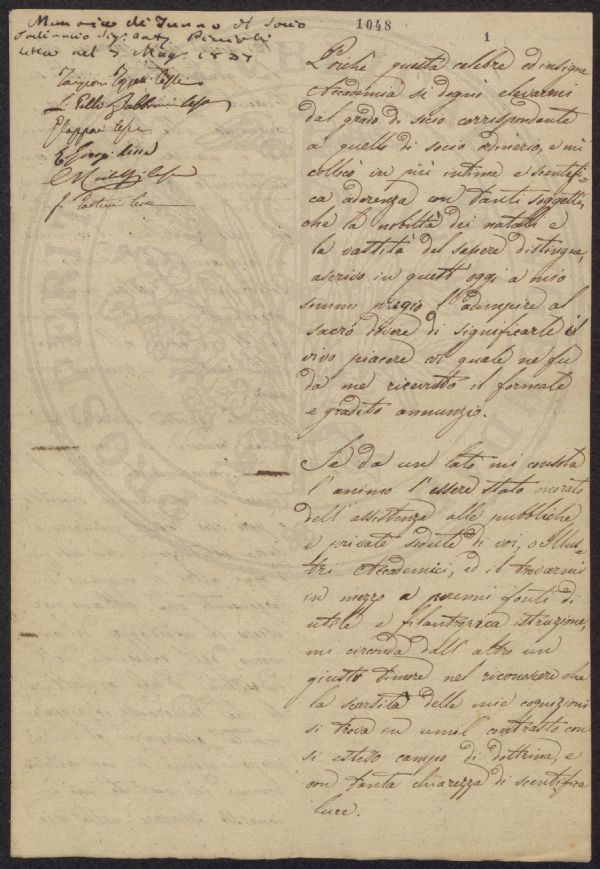 1048
1
Memoria di Turno del Socio
Ordinario Sig. Ant.
letta nel 7 Mag. 1837
Poichè questa celebre ed insigne
Accademia si degnò elevarmi
dal grado di socio corrispondente
a quello di socio ordinario, e mi
collocò in più intima e scentifi-
ca aderenza con tanti soggetti,
che la nobiltà dei natali e
la vastità del sapere distingue,
ascrivo in quest' oggi a mio
sommo pregio l'adempire al
sacro dovere di significarle il
vivo piacere col quale ne fu
da me ricevuto il formale
e gradito annunzio.
Se da un lato mi
l'animo l'essere stato onorato
dell' assistenza alle pubbliche
e private sedute di voi, o Illus-
tri Accademici, ed il trovarmi
in mezzo a perenni fonti di
utile e filantropica istruzione,
mi circonda dall' altro un
giusto timore nel riconoscere che
la scarsità delle mie cognizioni
si trova in umil contrasto con
sì esteso campo di dottrina, e
con tanta chiarezza di scentifica
luce.